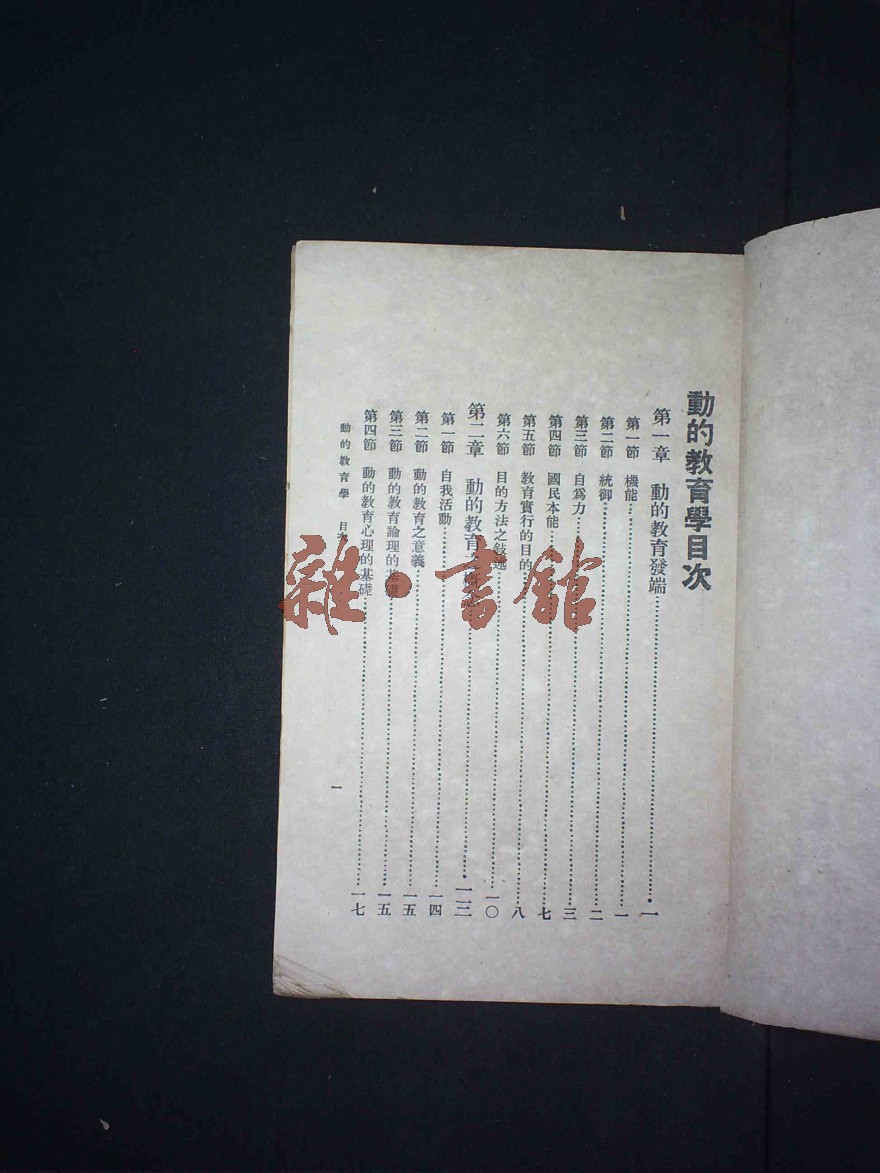 動的教育學目次
第一章 動的教育發端……一
第一節 機能……一
第二節 統御……二
第三節 自爲力……三
第四節 國民本能……七
第五節 教育實行的目的……八
第六節 目的方法之敍述……一〇
第二章 動的教育……一三
第一節 自我活動……一四
第二節 動的教育之意義……一五
第三節 動的教育論理的基礎……一五
第四節 動的教育心理的基礎……一七
動的教育學 目次
一
雜·書館